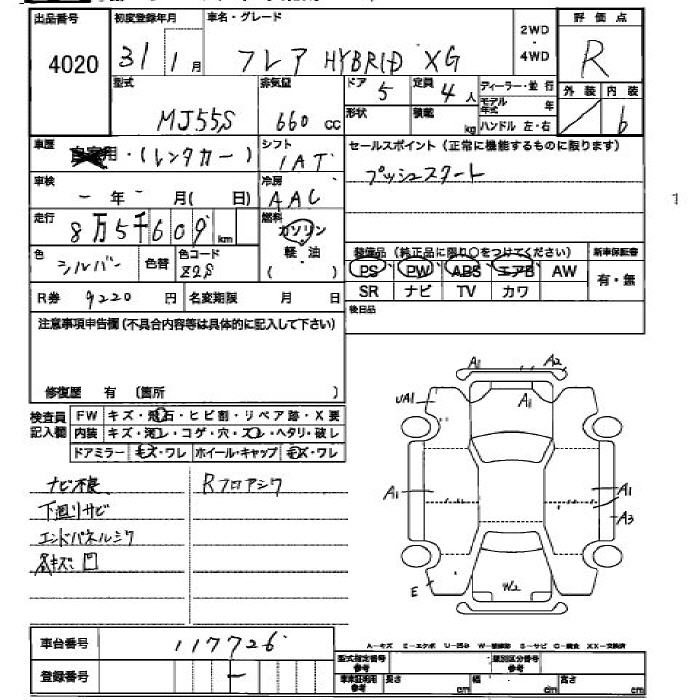 出品番号
4020
初度登録年月
31 1月
車名・グレード
フレア HYBRID XG
2WD
・
4WD
評価点
R
外装 内装
6
型式
MJ55S
排気量
660 cc
ドア
5
定員
4人
形状
積載
kg
ディーラー・並行
モデル年式 年
ハンドル 左・右
車歴
自家用・(レンタカー)
シフト
IAT
セールスポイント(正常に機能するものに限ります)
プッシュスタート
車検
- 年 - 月( 日)
冷房
AAC
走行
8万5千609 km
燃料
ガソリン
軽・油
( )
色
シルバー
色替
色コード
Z2S
装備品(純正品に限り○をつけてください)
PS PW ABS エアB AW
SR ナビ TV カワ
新車保証書
有・無
R券 9220 円
名変期限 月 日
後日品
注意事項申告欄(不具合内容等は具体的に記入して下さい)
修復歴 有 (箇所 )
検査員記入欄
FW キズ・飛石・ヒビ割・リペア跡・X要
内装 キズ・汚レ・コゲ・穴・スレ・ヘタリ・破レ
ドアミラー キズ・ワレ ホイール・キャップ キズ・ワレ
ナビ不良
下廻りサビ
エンドパネルシワ
Rフロアシワ
A1 A2
UA1
A1
A1
A1
A3
E
W2
車台番号 117726
登録番号 -
A-キズ E-エクボ U-凹み W-補修跡 S-サビ C-腐食 XX-交換済
型式指定番号
参考
類別区分番号
参考
車庫証明用
参考
長さ cm
幅 cm
高さ cm
1